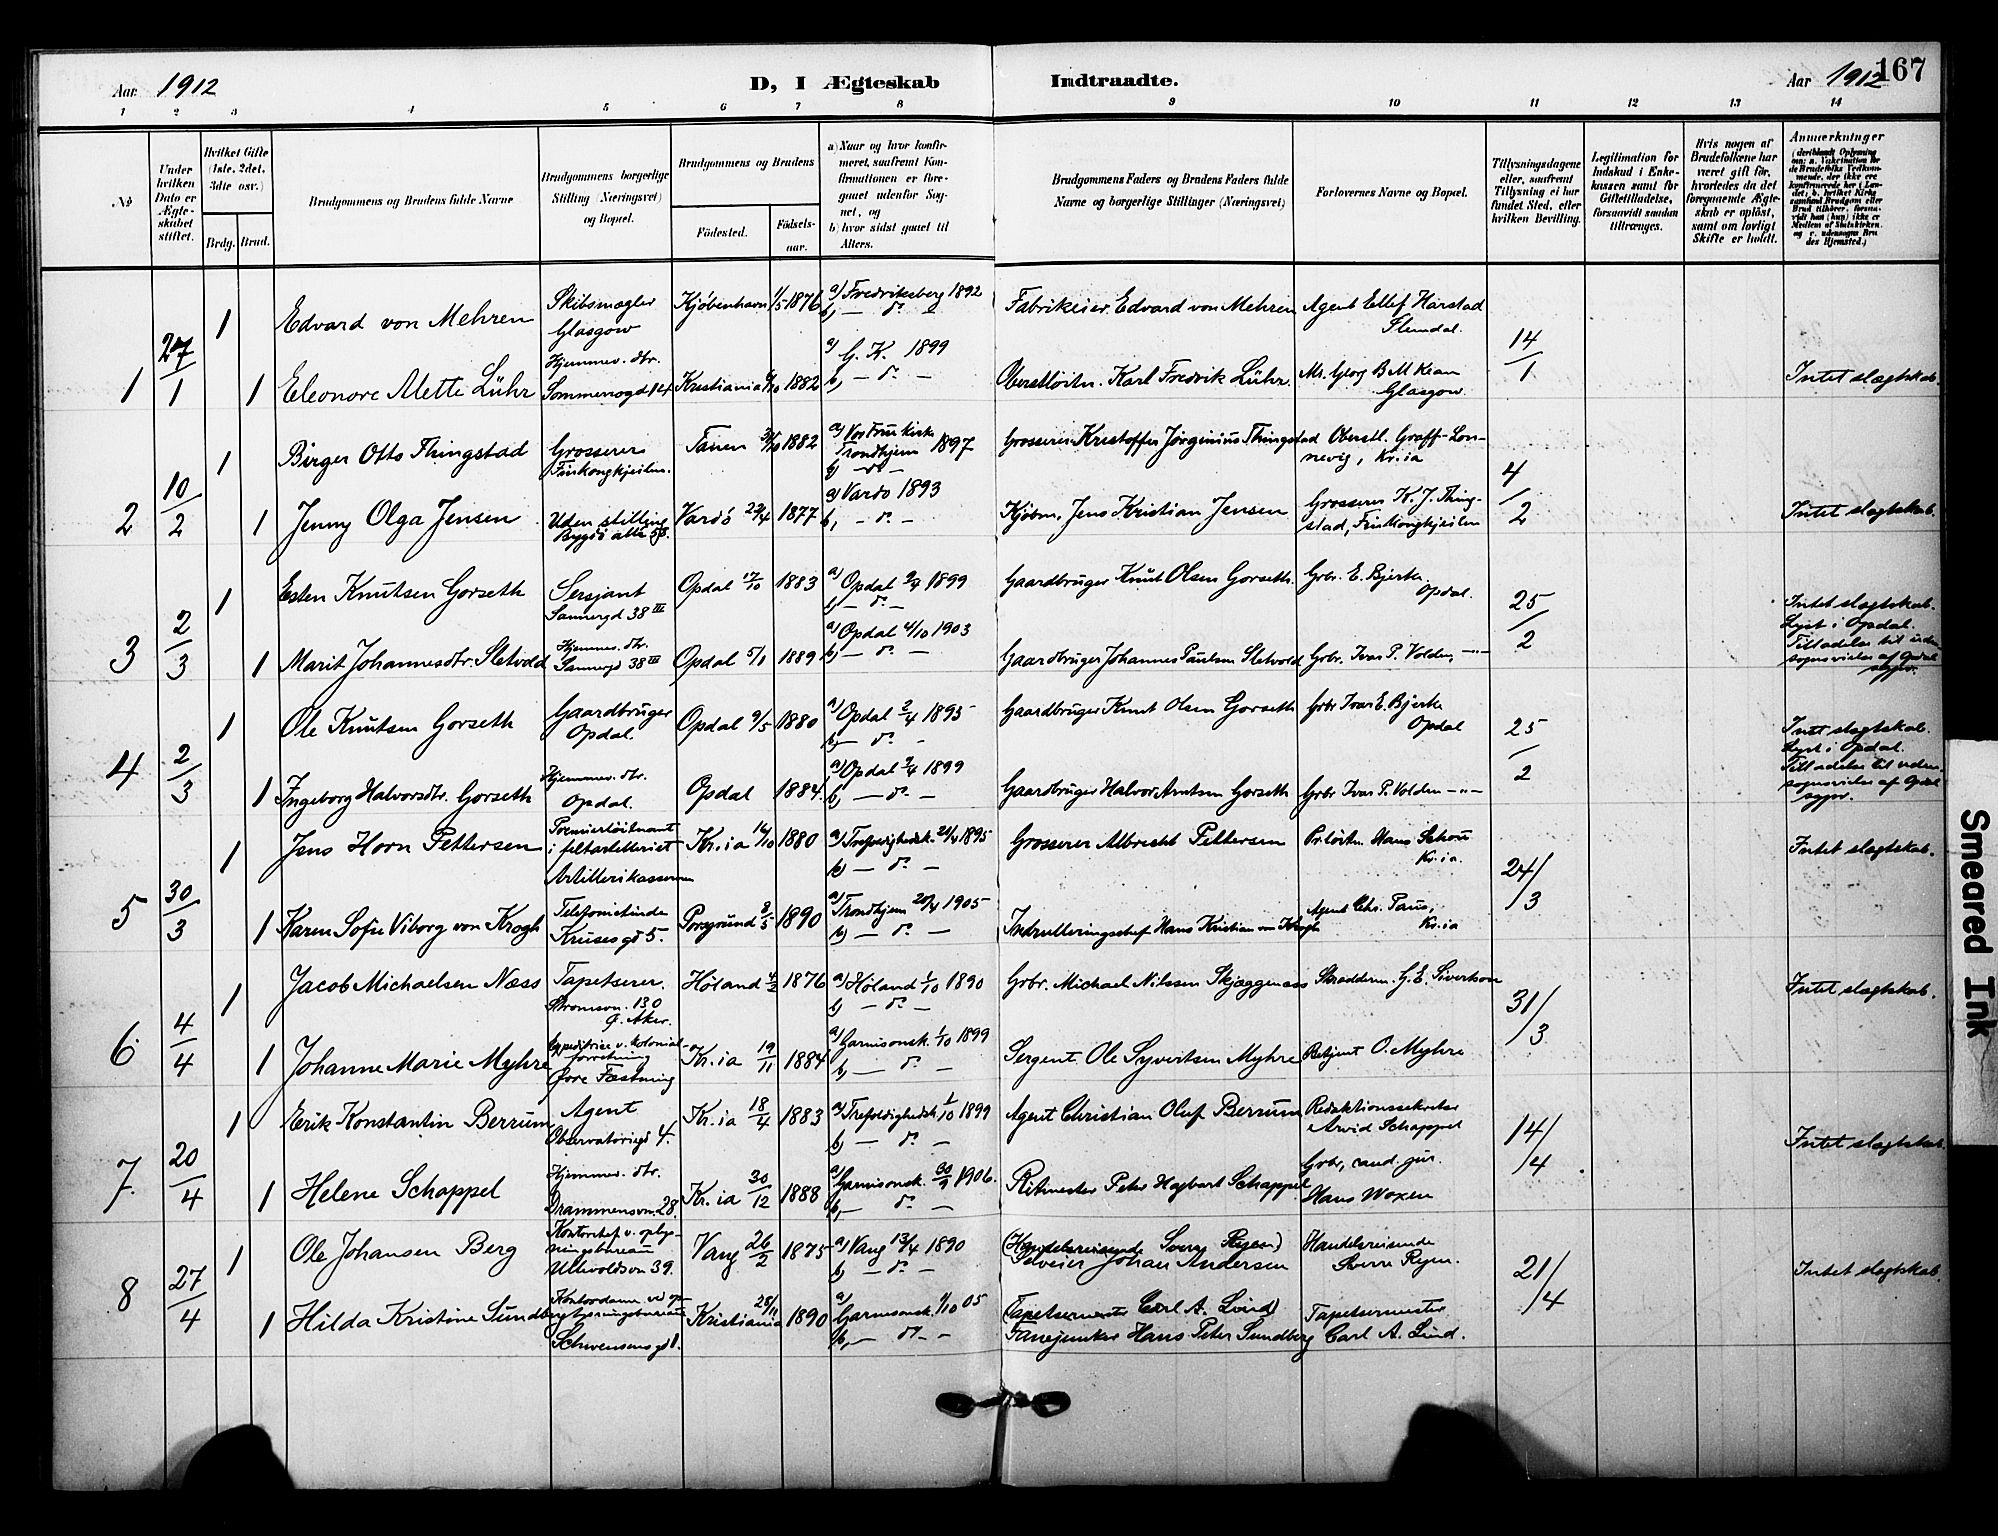 Aar 1912
D, I Ægteskab
Indtraadte.
Aar 1912
167
1 2 3 4 5 6 7 8 9 10 11 12 13 14
No
Under hvilken Dato er Ægteskabet stiftet.
Hvilket Gifte (1ste, 2det, 3die osv.)
Brdg. Brud.
Brudgommens og Brudens fulde Navne
Brudgommens borgerlige Stilling (Næringsvei) og Bopæl.
Brudgommens og Brudens
Fødested.
Fødselsaar.
a) Naar og hvor konfirmeret, saafremt Konfirmationen er foregaaet udenfor Sognet, og
b) hvor sidst gaaet til Alters.
Brudgommens Faders og Brudens Faders fulde Navne og borgerlige Stillinger (Næringsvei)
Forlovernes Navne og Bopæl.
Tillysningsdagene eller, saafremt Tillysning ei har fundet Sted, efter hvilken Bevilling.
Legitimation for Indskud i Enkekassen samt for Giftetilladelse, forsaavidt saadan tiltrænges.
Hvis nogen af Brudefolkene har været gift før, hvorledes da det foregaaende Ægteskab er opløst, samt om lovligt Skifte er holdt.
Anmerkninger
1 27/1
1 Edvard von Mehren Skibsmægler Glasgow Kjøbenhavn 1/5 1876 a) Fredriksberg 1892 b) — do — Fabrikeier Edvard von Mehren Agent Ellef Harstad Slemdal. 14/1
1 Eleonore Mette Lühr Hjemmev. dtr. Sommerrogd 14 Kristiania 1882 a) G. K. 1899 b) — do — Oberstløitn. Karl Fredrik Lühr. Mr. Georg B Glasgow. Intet slægtskab.
2 10/2
1 Birger Otto Thingstad Grosserer Finkongkjeilen. Tanen 1882 a) Vor Frue kirke Trondhjem 1897 b) — do — Grosserer Kristoffer Jørginius Thingstad Oberstl. Graff-Lonnevig, Kr.ia 4/2
1 Jenny Olga Jensen Uden stilling Bygdø alle Vardö 1877 a) Vardø 1893 b) — do — Kjøbm. Jens Kristian Jensen Grosserer K. J. Thingstad, Finkongkjeilen Intet slægtskab.
3 2/3
1 Esten Knutsen Gorseth Sersjant Sannergd 38 III Opdal 17/10 1883 a) Opdal 2/4 1899 b) — do — Gaardbruger Knut Olsen Gorseth. Grbr. E. Bjerke. Opdal. 25/2
1 Marit Johannesdtr. Sletvold Hjemmev. dtr. Sannergd 38 III Opdal 5/1 1889 a) Opdal 4/10 1903 b) — do — Gaardbruger Johannes Paulsen Sletvold Grbr. Ivar P. Volden, —"— Intet slægtskab. Lyst i Opdal. Tilladelse til udensognsvielse af Opdal sogpr.
4 2/3
1 Ole Knutsen Gorseth Gaardbruger Opdal. Opdal 9/5 1880 a) Opdal 2/4 1895 b) — do — Gaardbruger Knut Olsen Gorseth Grbr Ivar E. Bjerke Opdal 25/2
1 Ingeborg Halvorsdtr. Gorseth Hjemmev. dtr. Opdal. Opdal 1884. a) Opdal 2/4 1899 b) — do — Gaardbruger Halvor Arntsen Gorseth Grbr Ivar P. Volden —"— Intet slægtskab. Lyst i Opdal. Tilladelse til udensognsvielse af Opdal sogpr.
5 30/3
1 Jens Horn Pettersen Premierløitnant i feltartilleriet Artillerikasernen Kr.ia 14/10 1880 a) Trefoldighedsk. 21/4 1895 b) — do — Grosserer Albrecht Pettersen Pr.løitn. Hans Schou Kr.ia. 24/3 Intet slægtskab.
1 Karen Sofie Viborg von Krogh Telefonistinde Krusesgd 5. Porsgrund 8/5 1890 a) Trondhjem 20/4 1905 b) — do — Indrulleringschef Hans Kristian von Krogh Agent Chr. Paus, Kr.ia
6 4/4
1 Jacob Michaelsen Næss Tapetserer. Strømsvn. 130 Ø. Aker. Høland 4/2 1876 a) Høland 1/10 1890 b) — do — Grbr. Michael Nilssen Skjæggenæs Skrædderm. G. E. Sivertsen 31/3 Intet slægtskab.
1 Johanne Marie Myhre Expeditrice v. kolonialforretning Øvre Fæstning Kr.ia 19/11 1884 a) Garnisonsk. 1/10 1899 b) — do — Sergent Ole Syvertsen Myhre Betjent O. Myhre
7. 20/4
1 Erik Konstantin Berrum Agent Observatoriegd 4. Kr.ia 18/4 1883 a) Trefoldighedsk 1/10 1899 b) — do — Agent Christian Oluf Berrum Redaktionssekretær Arvid Schappel 14/4 Intet slægtskab.
1 Helene Schappel Hjemmev. dtr. Drammensvn. 28. Kr.ia 30/12 1888 a) Garnisonsk. 30/9 1906. b) — do — Ritmester Peter Hagbart Schappel Grbr, cand. jur. Hans Woxen
8 27/4
1 Ole Johansen Berg Kontorchef v. oplysningsbureau Ullevoldsvn 39. Vang 26/2 1875 a) Vang 13/4 1890 b) — do — (Handelsreisende Sverre Ryen) Selveier Johan Andersen Handelsreisende Sverre Ryen. 21/4 Intet slægtskab.
1 Hilda Kristine Sundberg Kontordame ved oplysningsbureau Schwensensgd 1. Kristiania 28/11 1890 a) Garnisonsk. 1/10 05 b) — do — (Tapetserermester Carl A. Lind) Fanejunker Hans Peter Sundberg Tapetserermester Carl A. Lind.
Smeared Ink